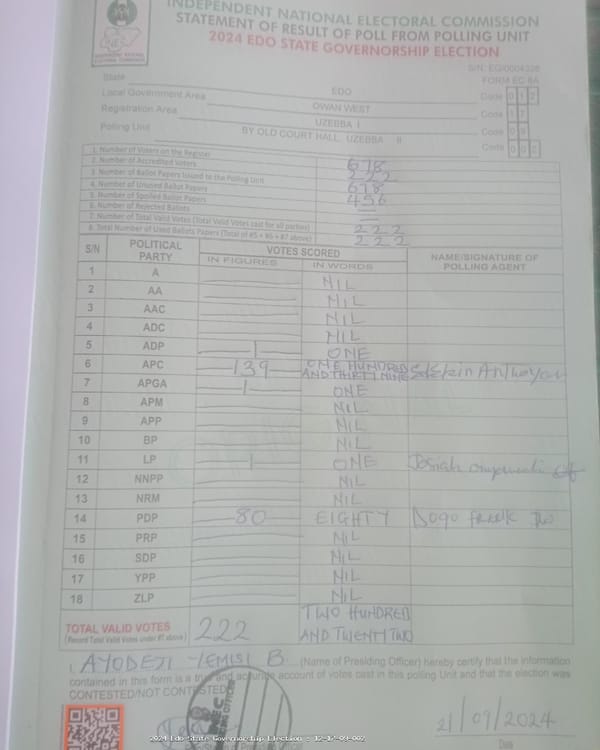 INDEPENDENT NATIONAL ELECTORAL COMMISSION
STATEMENT OF RESULT OF POLL FROM POLLING UNIT
2024 EDO STATE GOVERNORSHIP ELECTION
FORM EC 8A
State EDO Code 0 1 2
Local Government Area OWAN WEST Code 1 7
Registration Area UZEBBA I Code 0 9
Polling Unit BY OLD COURT HALL, UZEBBA II Code 0 0 2
1. Number of Voters on the Register 678
2. Number of Accredited Voters 222
3. Number of Ballot Papers Issued to the Polling Unit 678
4. Number of Unused Ballot Papers 456
5. Number of Spoiled Ballot Papers
6. Number of Rejected Ballots
7. Number of Total Valid Votes (Total Valid Votes cast for all parties) 222
8. Total Number of Used Ballots Papers (Total of #5 + #6 + #7 above) 222
S/N POLITICAL PARTY VOTES SCORED NAME/SIGNATURE OF POLLING AGENT
IN FIGURES IN WORDS
1 A NIL
2 AA NIL
3 AAC NIL
4 ADC NIL
5 ADP 1 ONE
6 APC 139 ONE HUNDRED AND THIRTY NINE
7 APGA 1 ONE
8 APM NIL
9 APP NIL
10 BP NIL
11 LP 1 ONE Josiah
12 NNPP NIL
13 NRM NIL
14 PDP 80 EIGHTY Dogo Frank
15 PRP NIL
16 SDP NIL
17 YPP NIL
18 ZLP NIL
TOTAL VALID VOTES 222 TWO HUNDRED
(Record Total Valid Votes under #7 above) AND TWENTY TWO
I, AYODEJI YEMISI B (Name of Presiding Officer) hereby certify that the information
contained in this form is a true and accurate account of votes cast in this polling Unit and that the election was
CONTESTED/NOT CONTESTED
21/09/2024
Date
2024 Edo State Governorship Election - 12-17-09-002